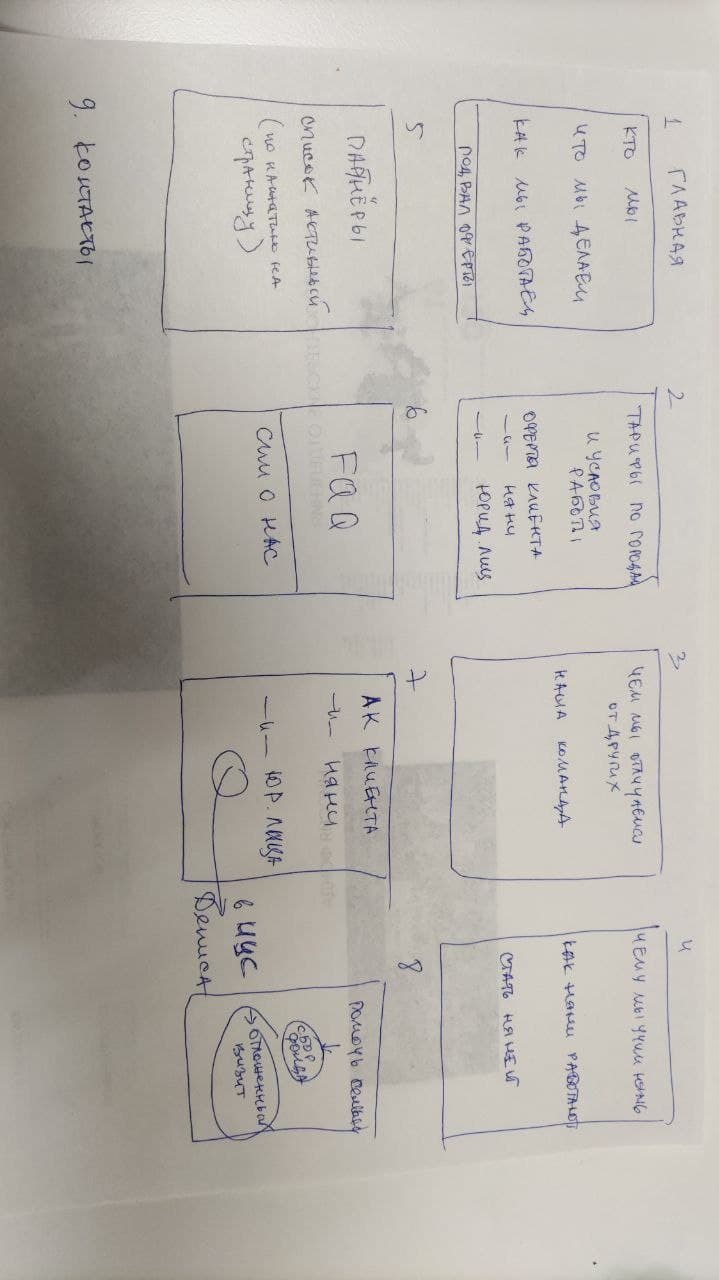 1 ГЛАВНАЯ
КТО МЫ
ЧТО МЫ ДЕЛАЕМ
КАК МЫ РАБОТАЕМ
ПОДВАЛ ОФЕРТЫ
2
ТАРИФЫ ПО ГОРОДАМ
И УСЛОВИЯ
РАБОТЫ
ОФЕРТА КЛИЕНТА
—и— НЯНИ
—и— ЮРИД. ЛИЦ
3
ЧЕМ МЫ ОТЛИЧАЕМСЯ
ОТ ДРУГИХ
НАША КОМАНДА
4
ЧЕМУ МЫ УЧИМ НЯНЬ
КАК НЯНИ РАБОТАЮТ
СТАТЬ НЯНЕЙ
5
ПАРТНЁРЫ
СПИСОК АКТИВНЫЙ
(по нажатию на
страницу)
6
FAQ
СМИ О НАС
7
ЛК КЛИЕНТА
—и— НЯНИ
—и— ЮР. ЛИЦА
в
Дениса
8
ПОМОЧЬ СЕМЬЯМ
СБОР
ФОНДА
ВИЗИТ
9. КОНТАКТЫ